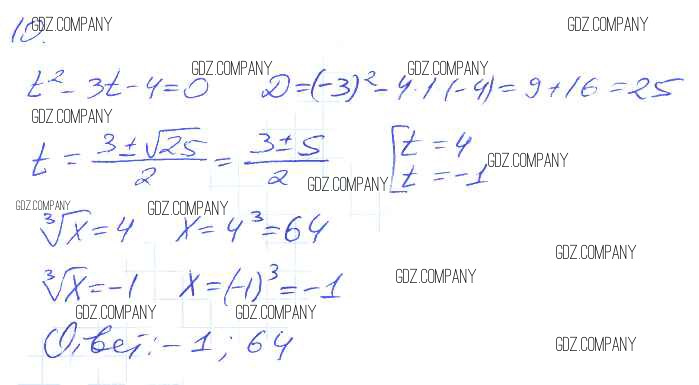 10. GDZ.COMPANY GDZ.COMPANY
GDZ.COMPANY GDZ.COMPANY
t² - 3t - 4 = 0 D = (-3)² - 4·1 (-4) = 9 + 16 = 25
GDZ.COMPANY
t = (3 ± √25)/2 = (3 ± 5)/2 [t = 4
t = -1 GDZ.COMPANY
GDZ.COMPANY
GDZ.COMPANY GDZ.COMPANY
∛x = 4 x = 4³ = 64
GDZ.COMPANY
∛x = -1 x = (-1)³ = -1 GDZ.COMPANY
GDZ.COMPANY GDZ.COMPANY
Ответ: -1; 64 GDZ.COMPANY